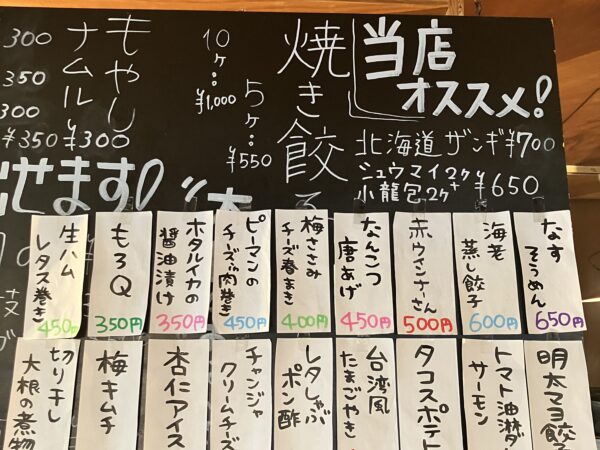 当店
オススメ!
北海道ザンギ¥700
シュウマイ2ケ+
小龍包2ケ
¥650
焼き餃子
5ケ…
¥550
10ケ…
¥1,000
もやし
ナムル
¥300
300
350
300
¥350
せます!
なす
そうめん
650円
海老
蒸し餃子
600円
赤ウインナーさん
500円
なんこつ
唐あげ
450円
梅ささみ
チーズ春まき
400円
ピーマンの
チーズin肉巻き
450円
ホタルイカの
醤油漬け
350円
もろQ
350円
生ハム
レタス巻き
450円
明太マヨ餃
トマト油淋
サーモン
タコスポテト
台湾風
たまごやき
レタしゃぶ
ポン酢
チャンジャ
クリームチーズ
杏仁アイス
梅キムチ
切り干し
大根の煮物